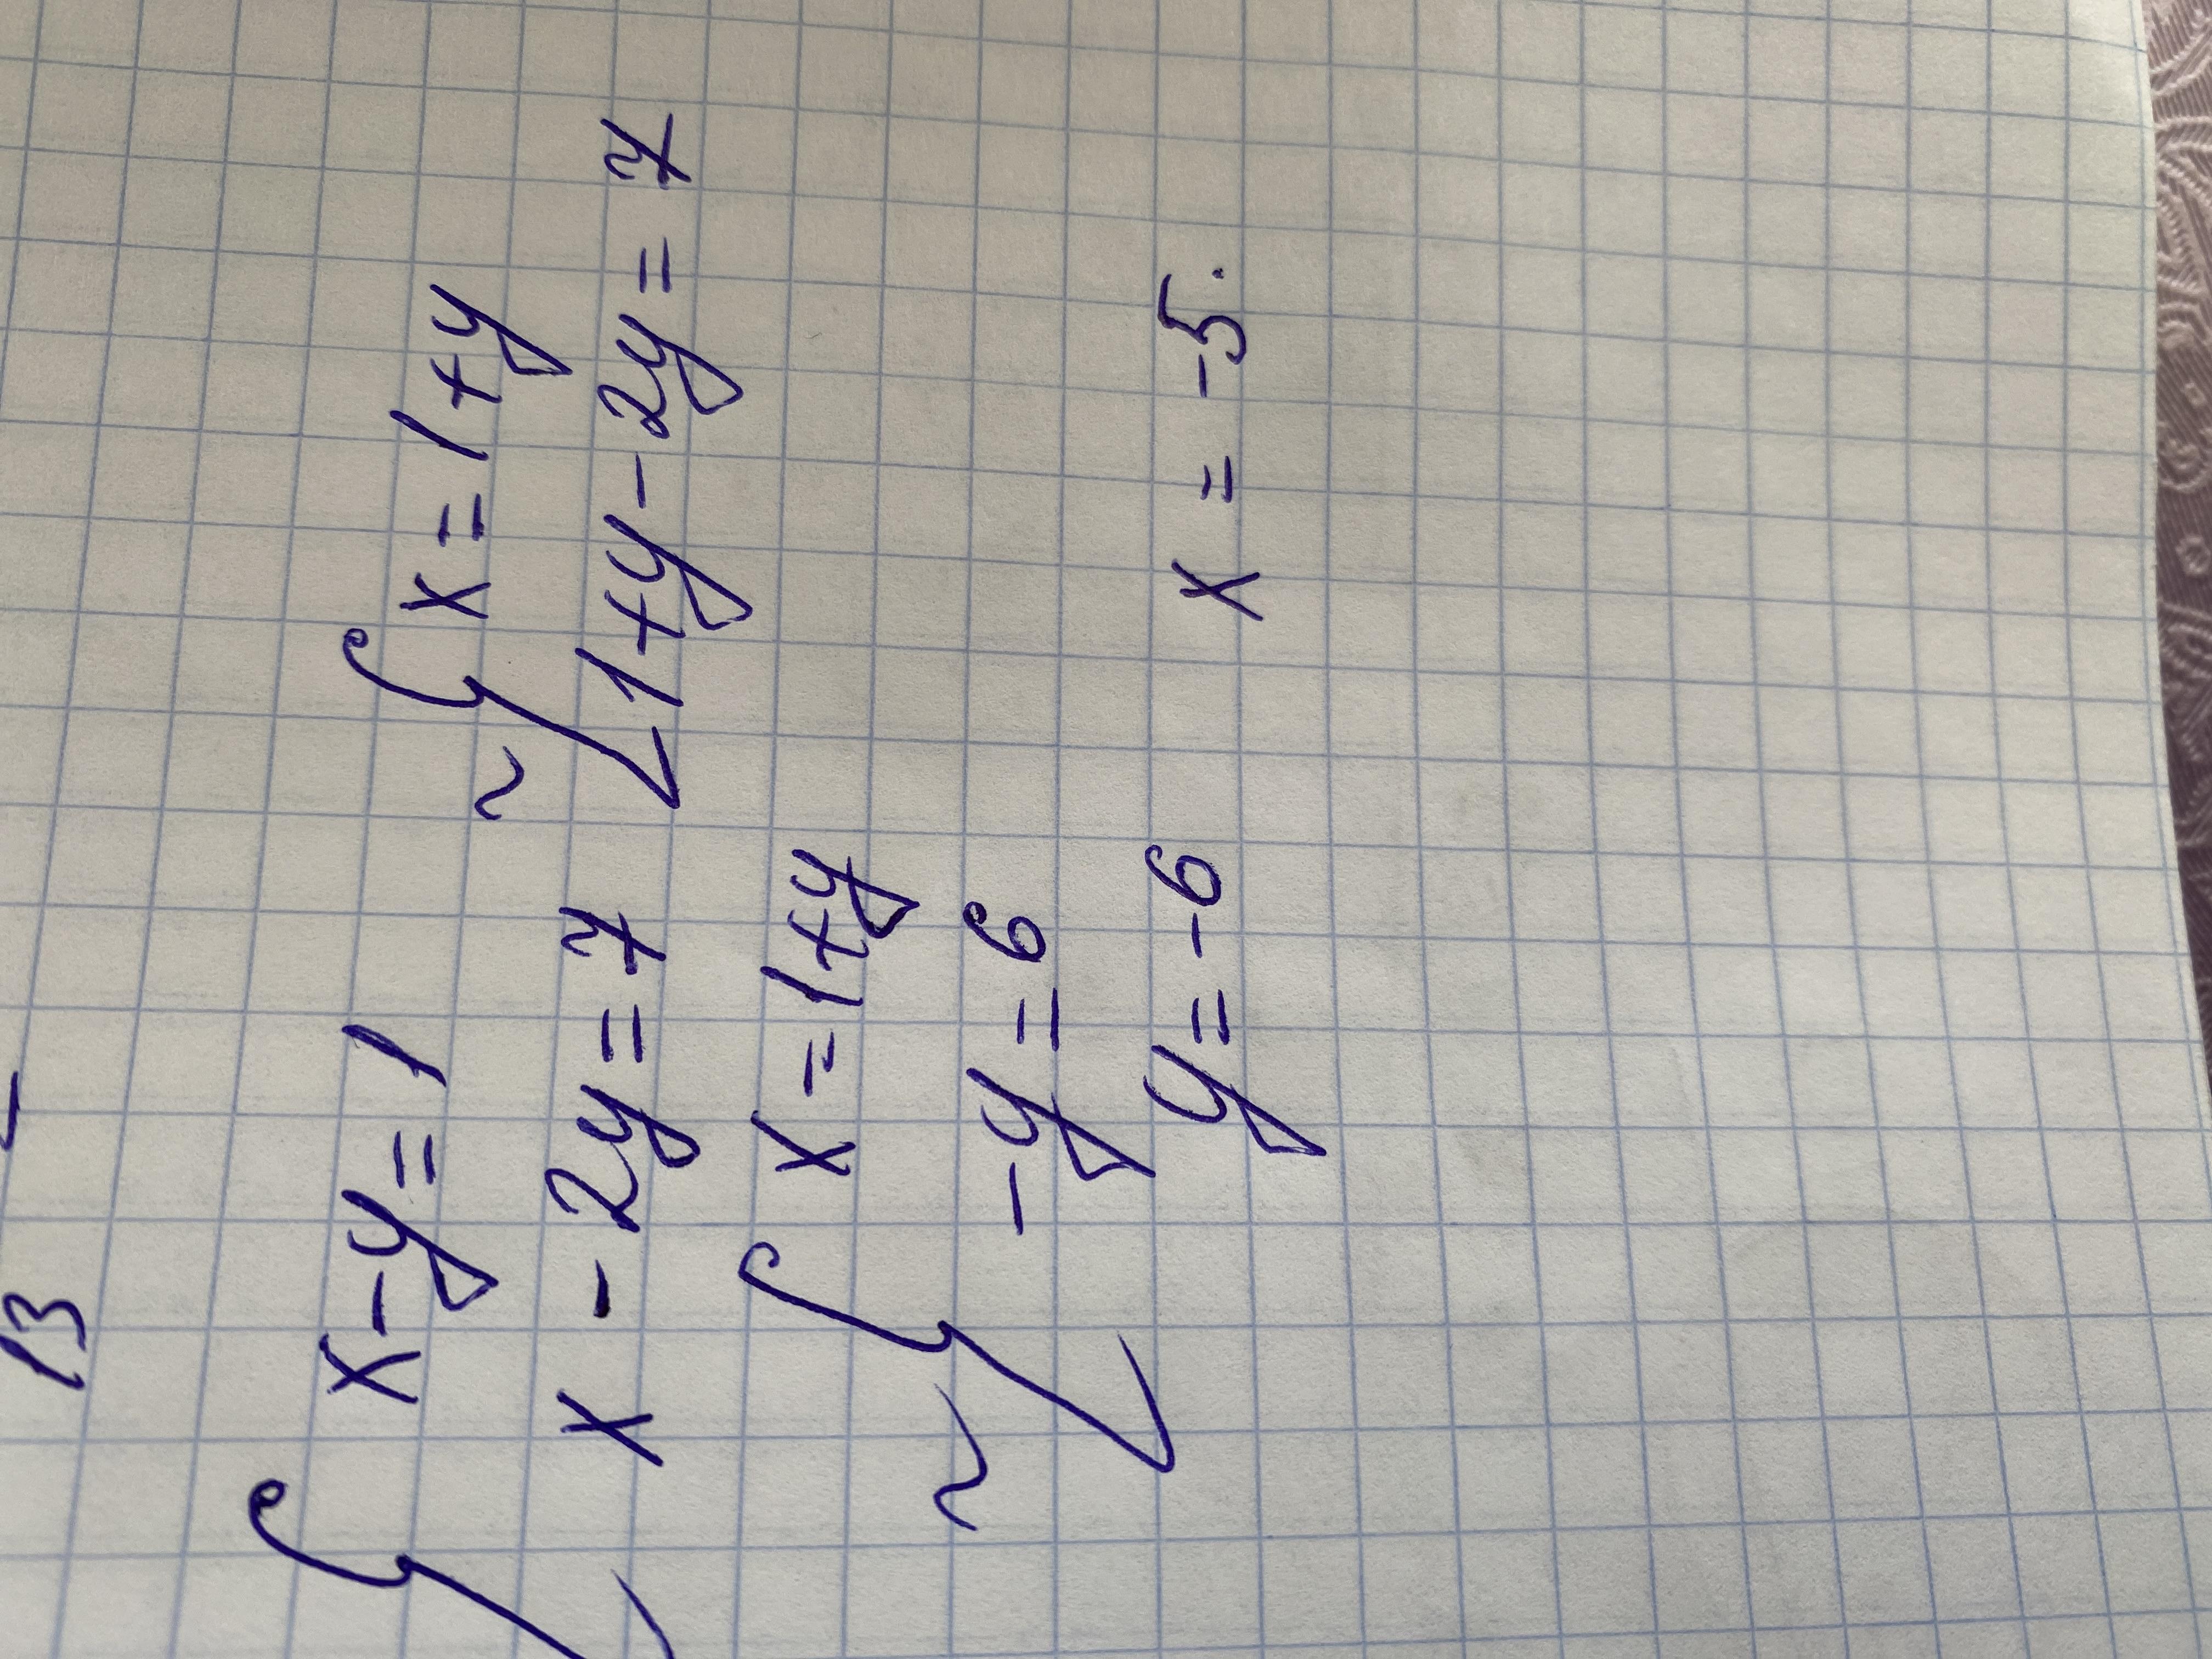 13
{ x - y = 1 ~ { x = 1 + y
x - 2y = 7 1 + y - 2y = 7
~ { x = 1 + y
- y = 6
y = - 6 x = - 5.